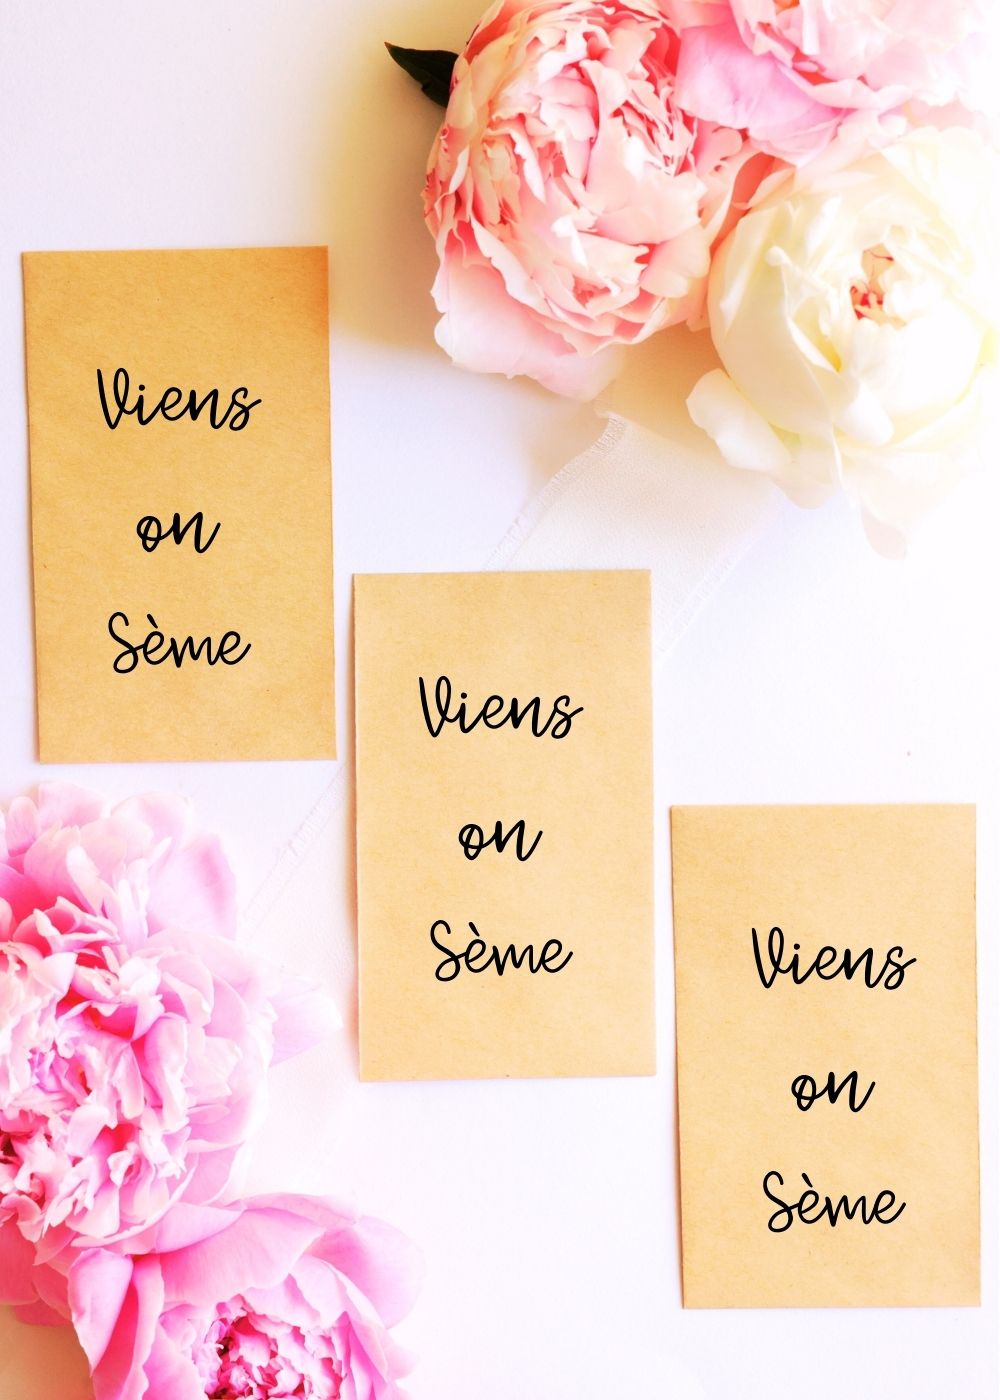 Viens
on
Sème
Viens
on
Sème
Viens
on
Sème